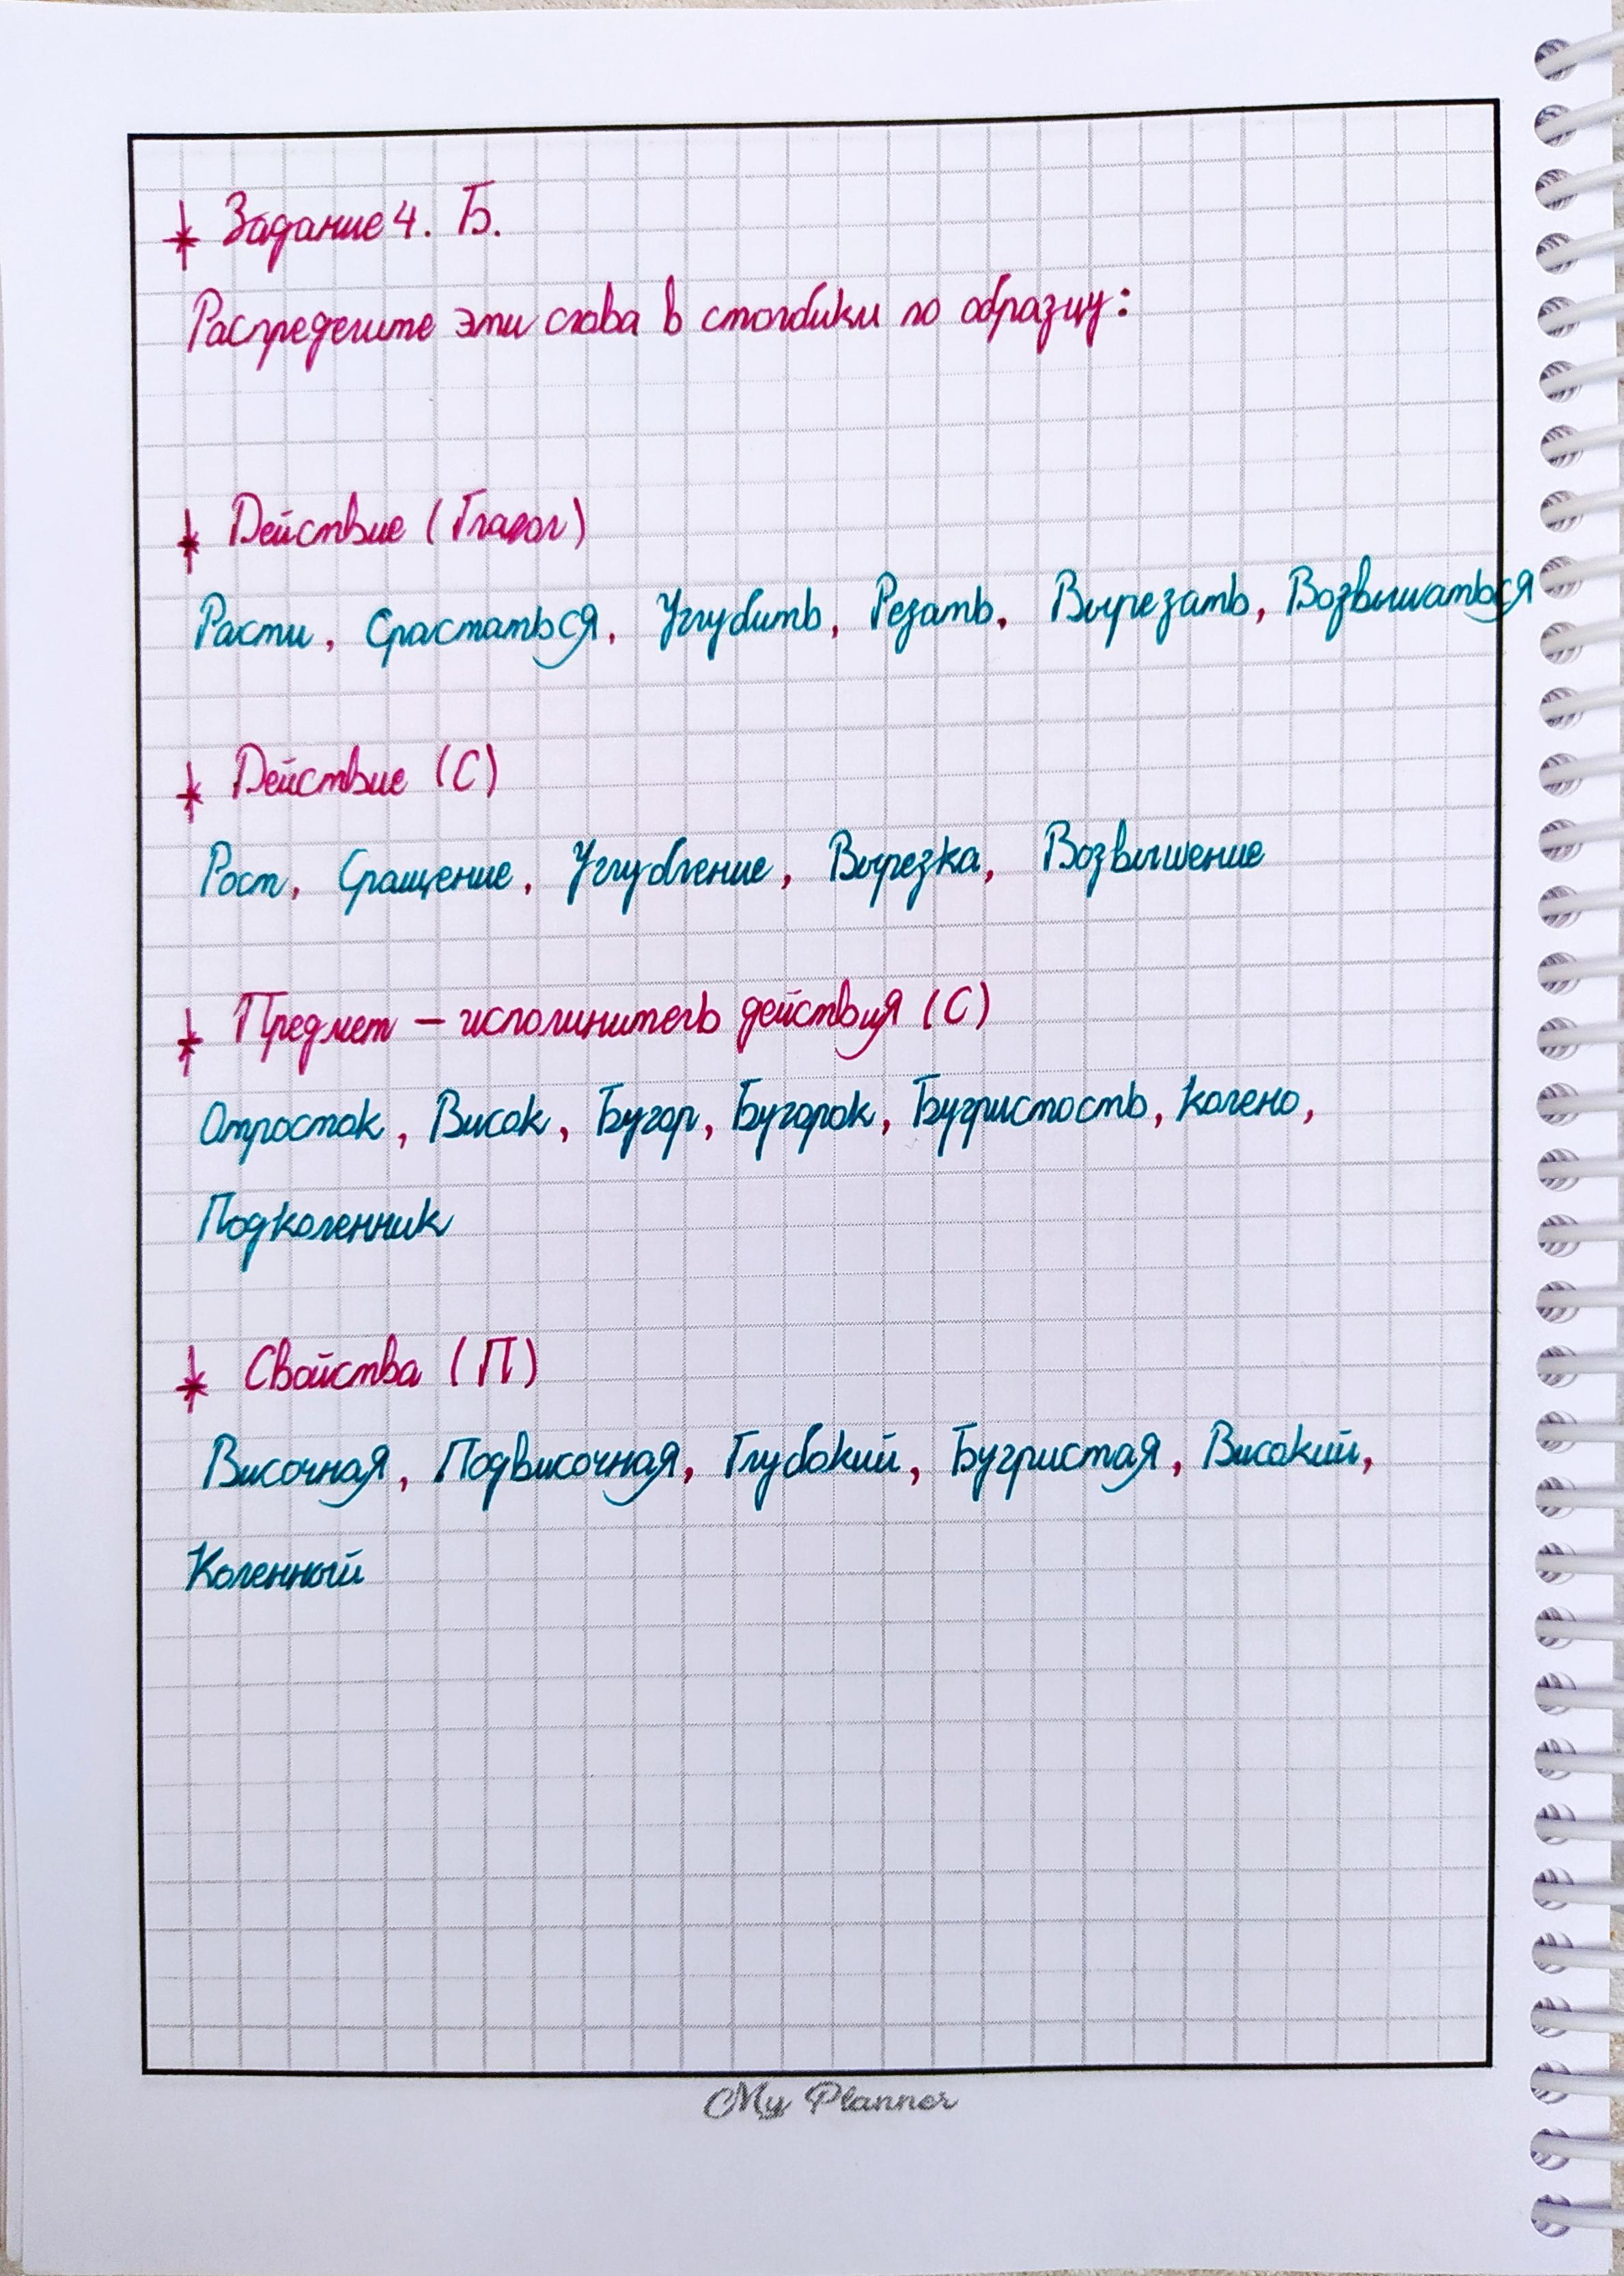 * Задание 4. Б.
Распределите эти слова в столбики по образцу:
* Действие (Глагол)
Расти, Срастаться, Углубить, Резать, Вырезать, Возвышаться
* Действие (С)
Рост, Сращение, Углубление, Вырезка, Возвышение
* Предмет – исполнитель действия (С)
Отросток, Висок, Бугор, Бугорок, Бугристость, колено,
Подколенник
* Свойства (П)
Височная, Подвисочная, Глубокий, Бугристая, Високий,
Коленный
My Planner